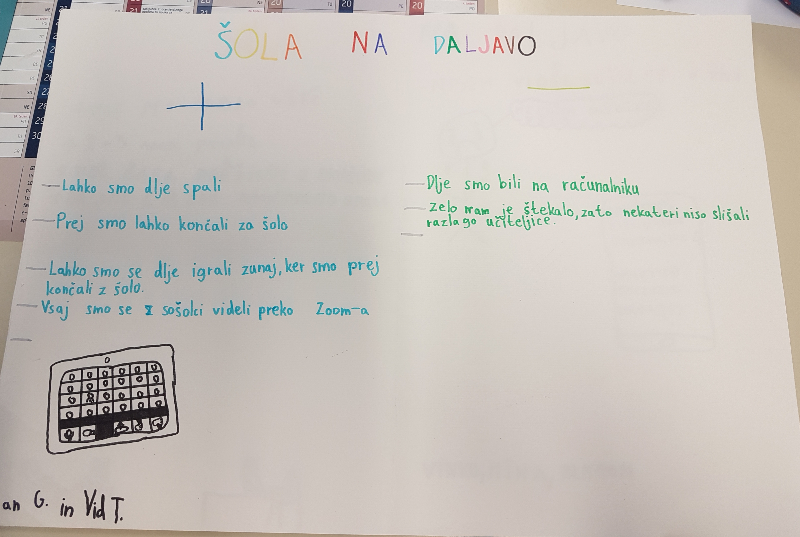 ŠOLA NA DALJAVO
Lahko smo dlje spali
Prej smo lahko končali za šolo
Lahko smo se dlje igrali zunaj, ker smo prej
končali z šolo.
Vsaj smo se z sošolci videli preko Zoom-a
Dlje smo bili na računalniku
Zelo nam je štekalo, zato nekateri niso slišali
razlago učiteljice.
an G. in Vid T.